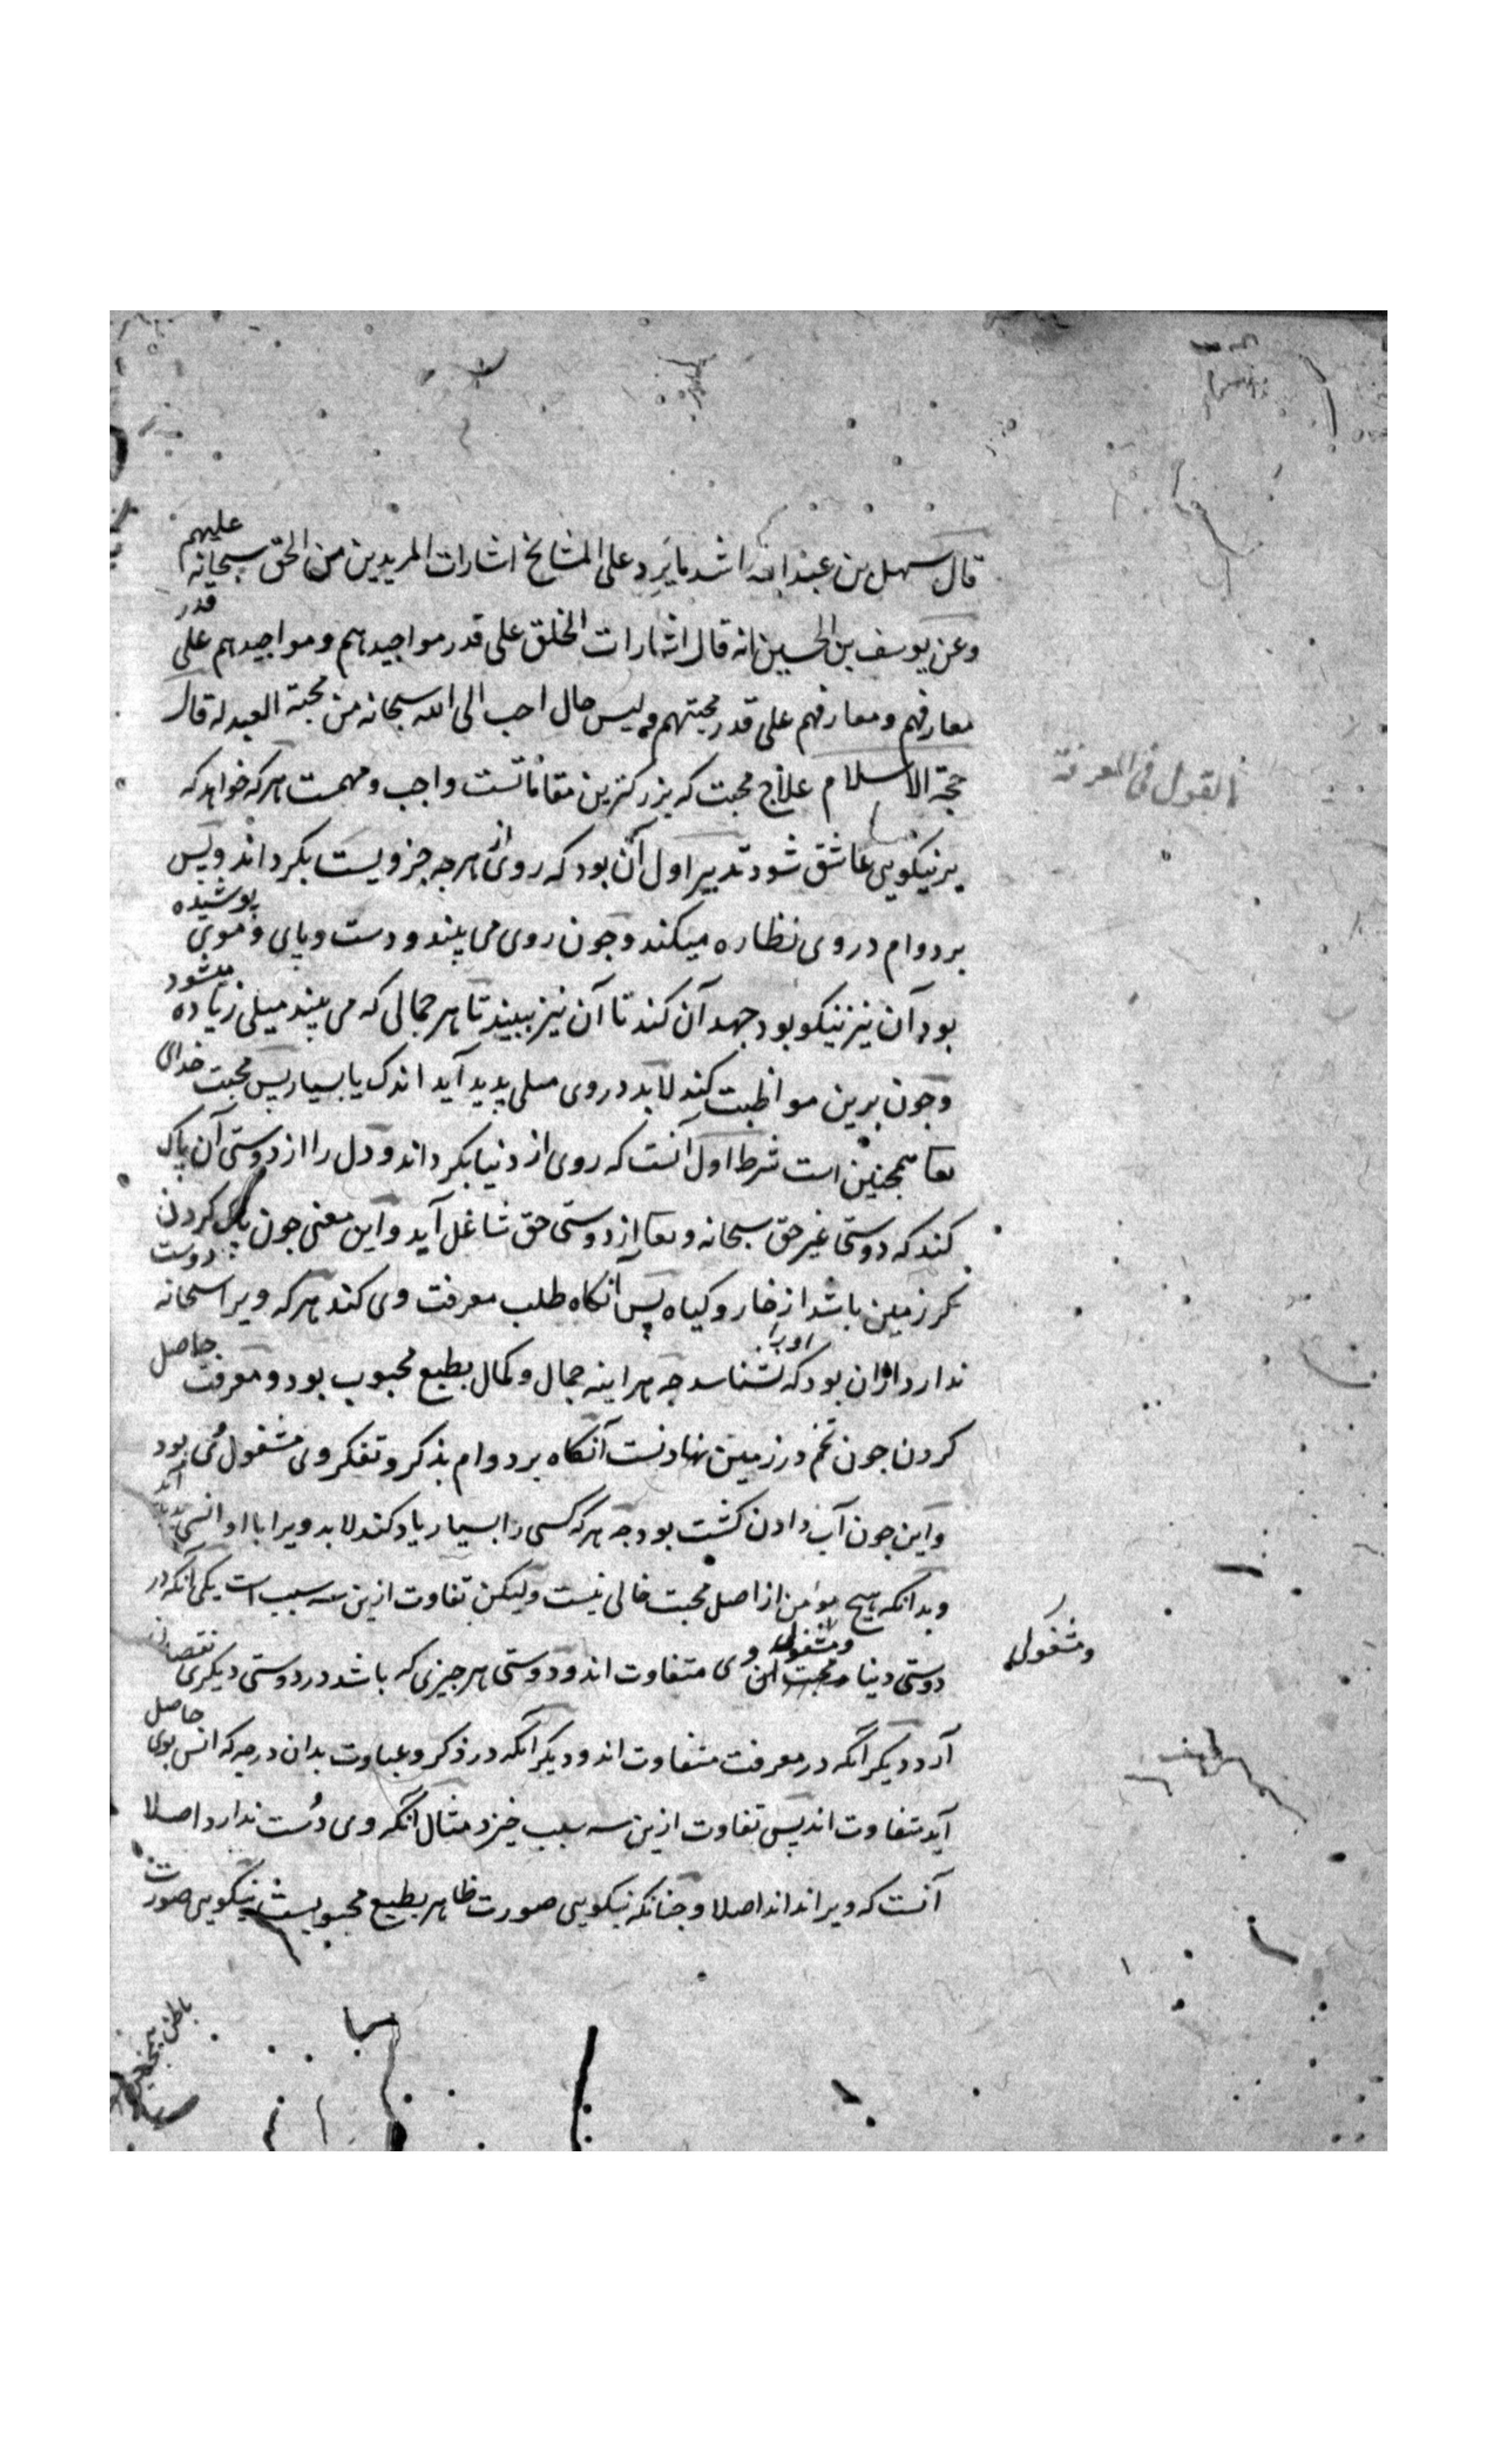 قال سهل بن عبد الله اشد ما يَرِد على المشايخ اشارات المريدين من الحق سبحانه عليهم
وعن يوسف بن الحسين انه قال اشارات الخلق على قدر مواجيدهم ومواجيدهم على قدر
معارفهم ومعارفهم على قدر محبتهم وليس حال احب الى الله سبحانه من محبة العبد له قال
حجة الاسلام علاج محبت كه بزركترين مقاماتست واجب ومهمست هركه خواهد كه
بر نيكويى عاشق شود تدبير اول آن بود كه روى از هرجه جز ويست بكرداند وپس
بر دوام در وى نظاره ميكند وجون روى مى بيند ودست وپاى وموى پوشيده
بود آن نيز نيكو بود جهد آن كند تا آن نيز ببيند تا هر جمالى كه مى بيند ميلى زياده ميشود
وجون برين مواظبت كند لابد در وى ميلى پديد آيد اندك يا بسيار پس محبت خداى
تعا همجنين است شرط اول آنست كه روى از دنيا بكرداند ودل را از دوستى آن پاك
كند كه دوستى غير حق سبحانه وتعا از دوستى حق شاغل آيد واين معنى جون پاك كردن
زمين باشد از خار وكياه پس آنكاه طلب معرفت وى كند هركه ويرا سبحانه دوست
ندارد ازان بود كه اورا نشناسد جه هراينه جمال وكمال بطبع محبوب بود ومعرفت حاصل
كردن جون تخم در زمين نهادنست آنكاه بر دوام بذكر وتفكر وى مشغول مى بود
واين جون آب دادن كشت بود جه هركه كسى را بسيار ياد كند لابد ويرا با او انسى پديد آيد
وبدانكه هيج مؤمن از اصل محبت خالى نيست وليكن تفاوت ازين سه سبب است يكى آنكه در
دوستى دنيا ومشغولى وى متفاوت اند ودوستى هر جيزى كه باشد در دوستى ديكرى نقصان
ومشغولى
آرد وديكر آنكه در معرفت متفاوت اند وديكر آنكه در ذكر وعبادت بدان درجه كه انس بوى حاصل
آيد متفاوت اند پس تفاوت ازين سه سبب خيزد مثال آنكه وى دُست ندارد اصلا
آنست كه ويرا نداند اصلا وجنانكه نيكويى صورت ظاهر بطبع محبوبست نيكويى صورت
باطن همجنين
القول فى المعرفة